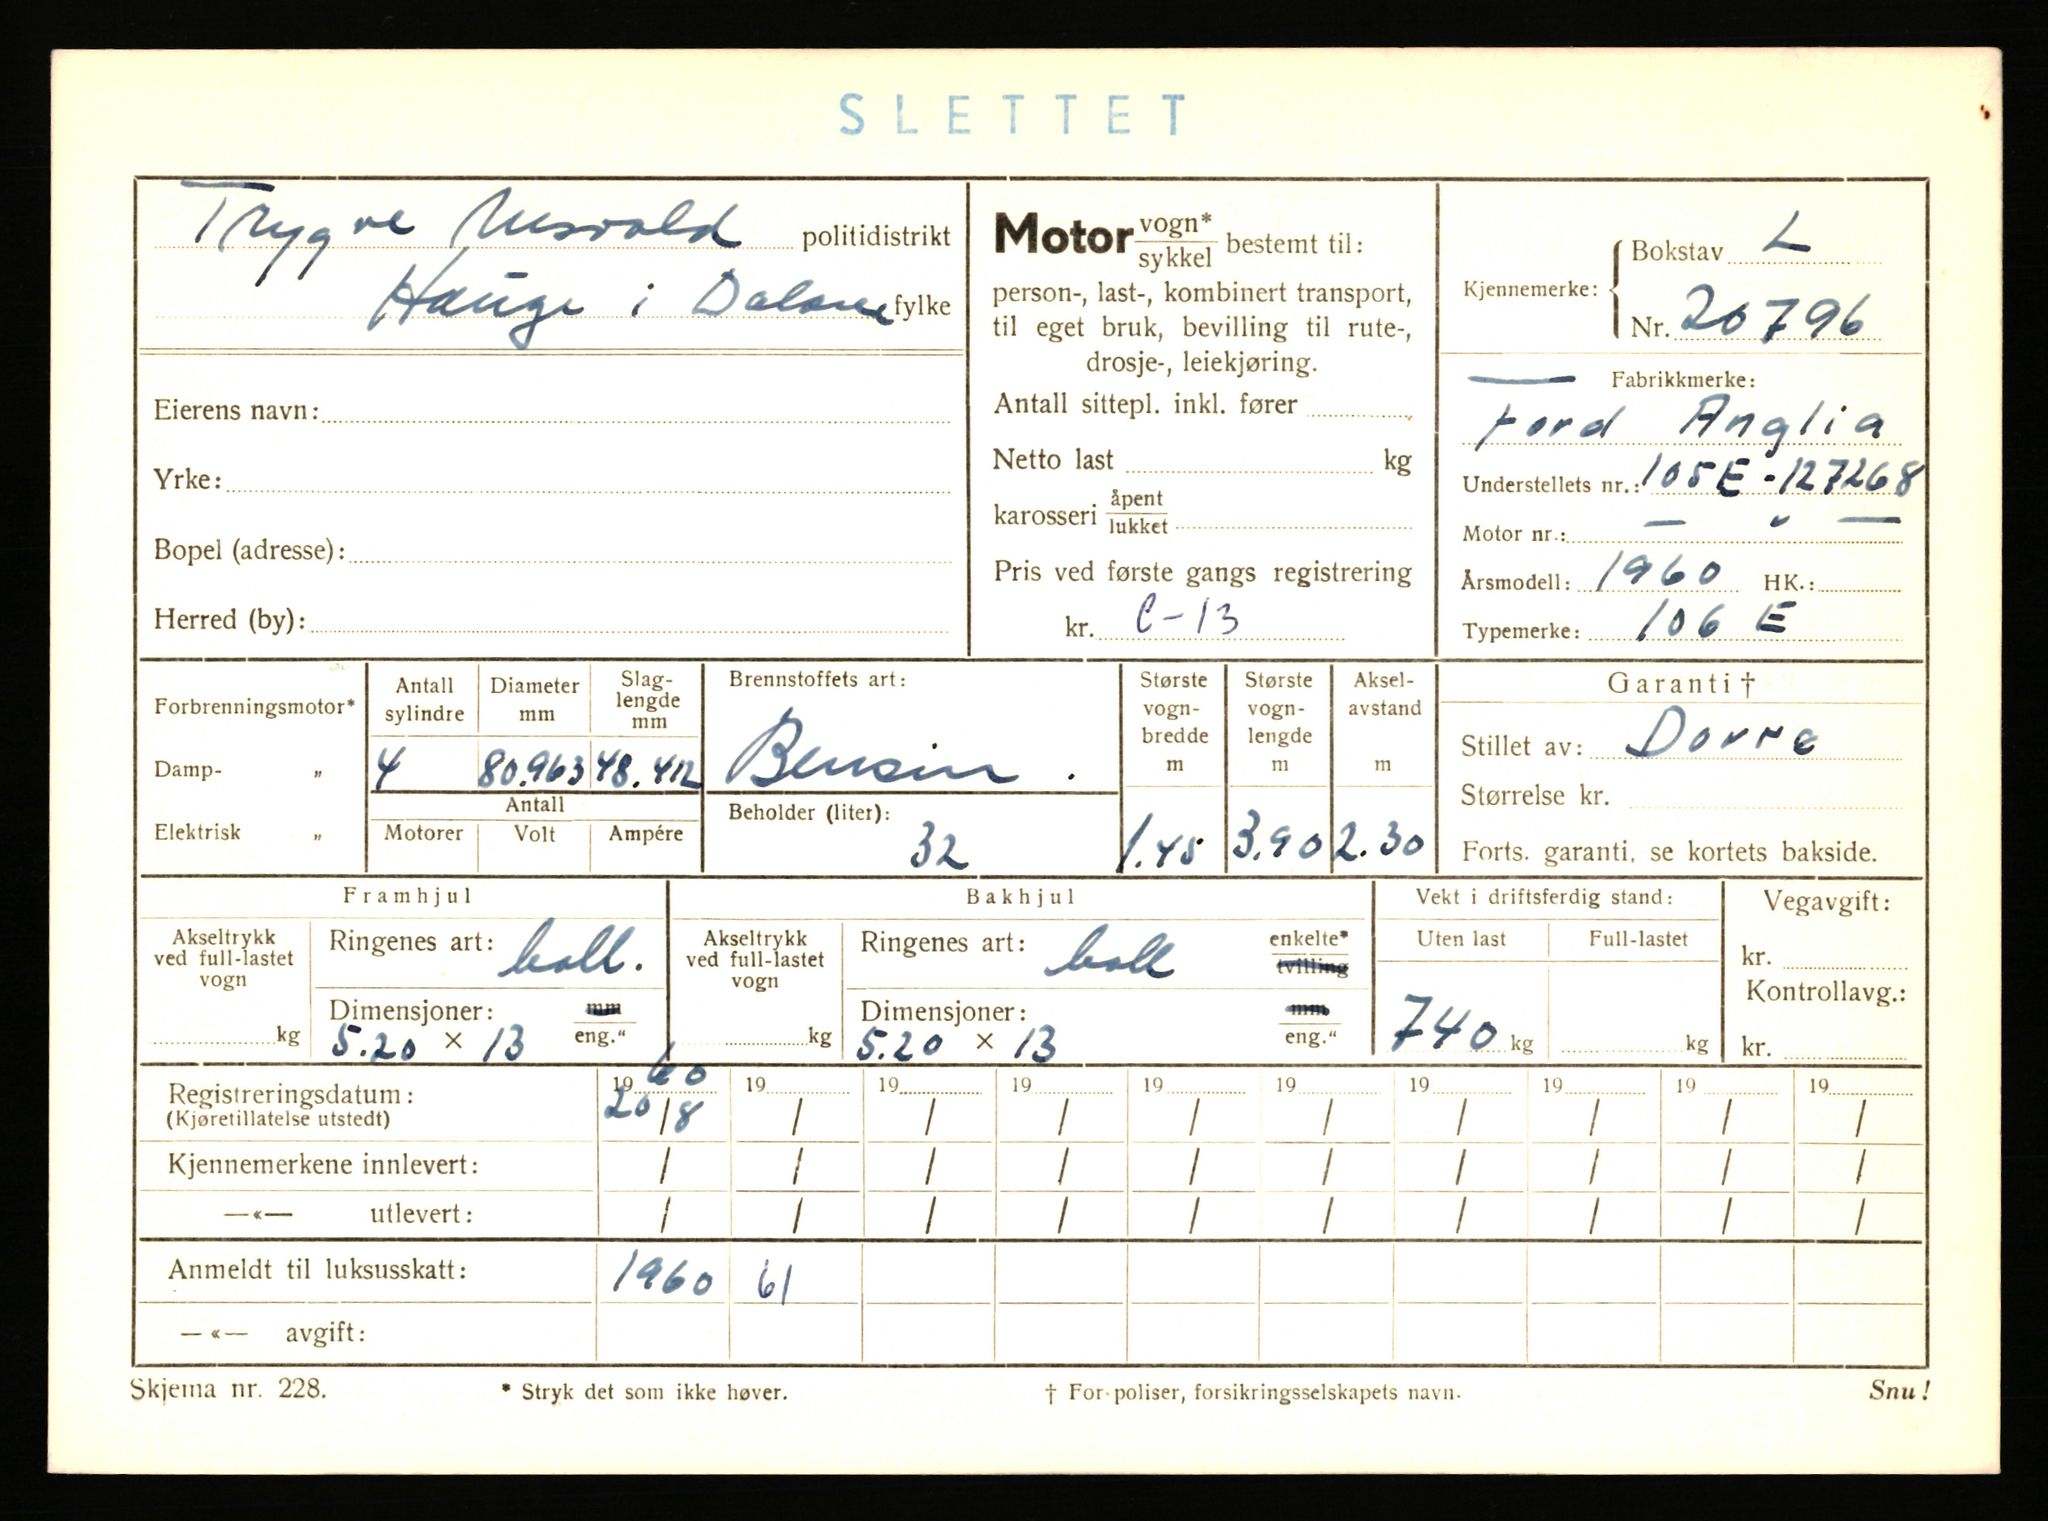 SLETTET
Trygve politidistrikt
Hauge i Dalane fylke
Eierens navn:
Yrke:
Bopel (adresse):
Herred (by):
Motor vogn* / sykkel bestemt til:
person-, last-, kombinert transport,
til eget bruk, bevilling til rute-,
drosje-, leiekjøring.
Antall sittepl. inkl. fører
Netto last kg
karosseri åpent / lukket
Pris ved første gangs registrering
kr. C-13
Kjennemerke: { Bokstav L
Nr. 20796
Fabrikkmerke:
Ford Anglia
Understellets nr.: 105E-127268
Motor nr.: — " —
Årsmodell: 1960 HK.:
Typemerke: 106 E
Forbrenningsmotor*
Damp- „
Elektrisk „
Antall sylindre
4
Diameter mm
80.963
Slag-lengde mm
48.412
Antall
Motorer Volt Ampére
Brennstoffets art:
Bensin.
Beholder (liter):
32
Største vogn-bredde m
1.45
Største vogn-lengde m
3.90
Aksel-avstand m
2.30
Garanti †
Stillet av: Dovre
Størrelse kr.
Forts. garanti, se kortets bakside.
Framhjul
Akseltrykk ved full-lastet vogn
kg
Ringenes art: ball.
Dimensjoner: mm
5.20 × 13 eng."
Bakhjul
Akseltrykk ved full-lastet vogn
kg
Ringenes art: ball enkelte*
tvilling
Dimensjoner: mm
5.20 × 13 eng."
Vekt i driftsferdig stand:
Uten last Full-lastet
740 kg kg
Vegavgift:
kr.
Kontrollavg.:
kr.
Registreringsdatum: 1960 19 19 19 19 19 19 19 19 19
(Kjøretillatelse utstedt) 20/8 / / / / / / / / /
Kjennemerkene innlevert: / / / / / / / / / /
—«— utlevert: / / / / / / / / / /
Anmeldt til luksusskatt: 1960 61
—«— avgift:
Skjema nr. 228. * Stryk det som ikke høver. † For poliser, forsikringsselskapets navn. Snu!